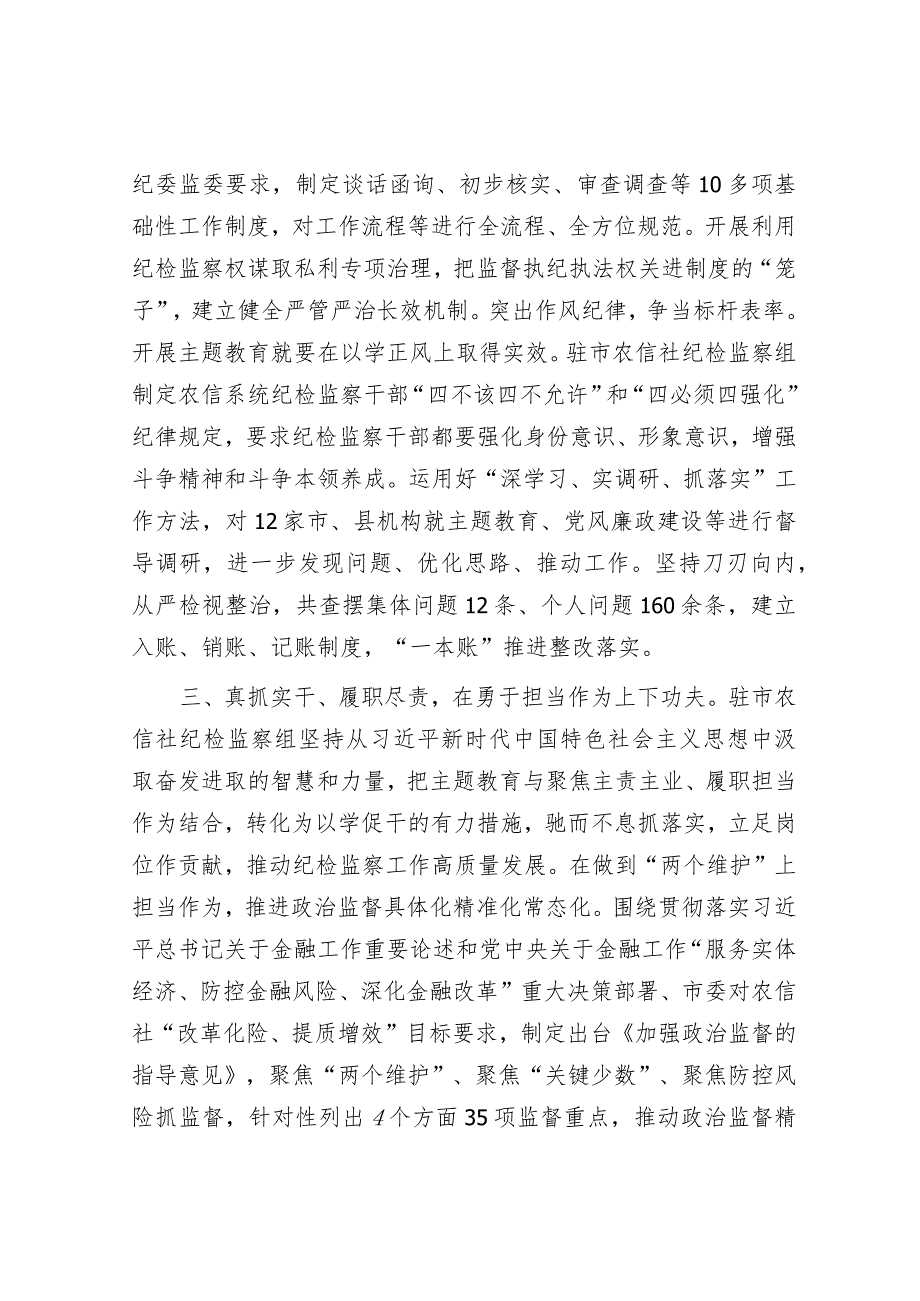 纪委监委要求，制定谈话函询、初步核实、审查调查等 10 多项基
础性工作制度，对工作流程等进行全流程、全方位规范。开展利用
纪检监察权谋取私利专项治理，把监督执纪执法权关进制度的“笼
子”，建立健全严管严治长效机制。突出作风纪律，争当标杆表率。
开展主题教育就要在以学正风上取得实效。驻市农信社纪检监察组
制定农信系统纪检监察干部“四不该四不允许”和“四必须四强化”
纪律规定，要求纪检监察干部都要强化身份意识、形象意识，增强
斗争精神和斗争本领养成。运用好“深学习、实调研、抓落实”工
作方法，对 12 家市、县机构就主题教育、党风廉政建设等进行督
导调研，进一步发现问题、优化思路、推动工作。坚持刀刃向内，
从严检视整治，共查摆集体问题 12 条、个人问题 160 余条，建立
入账、销账、记账制度，“一本账”推进整改落实。
三、真抓实干、履职尽责，在勇于担当作为上下功夫。驻市农
信社纪检监察组坚持从习近平新时代中国特色社会主义思想中汲
取奋发进取的智慧和力量，把主题教育与聚焦主责主业、履职担当
作为结合，转化为以学促干的有力措施，驰而不息抓落实，立足岗
位作贡献，推动纪检监察工作高质量发展。在做到“两个维护”上
担当作为，推进政治监督具体化精准化常态化。围绕贯彻落实习近
平总书记关于金融工作重要论述和党中央关于金融工作“服务实体
经济、防控金融风险、深化金融改革”重大决策部署、市委对农信
社“改革化险、提质增效”目标要求，制定出台《加强政治监督的
指导意见》，聚焦“两个维护”、聚焦“关键少数”、聚焦防控风
险抓监督，针对性列出 4 个方面 35 项监督重点，推动政治监督精